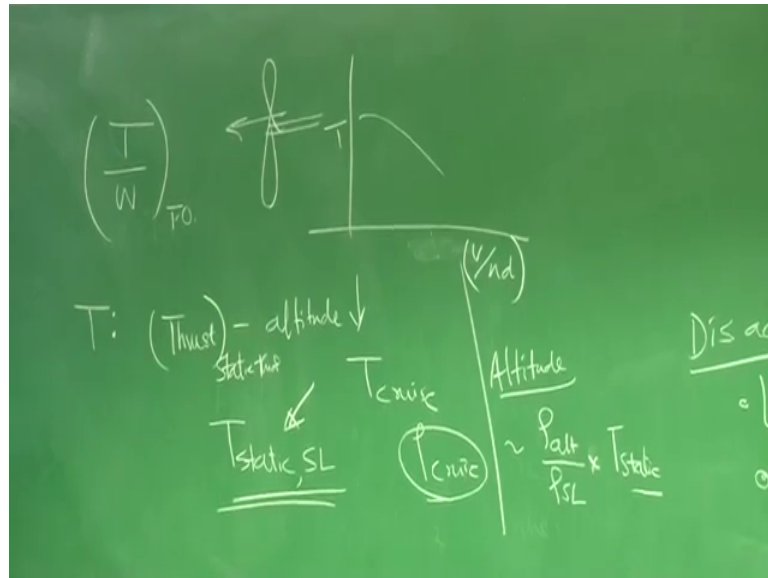 (T/W)T.O.
T
(V/nd)
T: (Thrust)static thrust – altitude ↓
Tcruise
Tstatic,SL
ρcruise
Altitude
~ ρalt/ρSL × Tstatic
Dis a